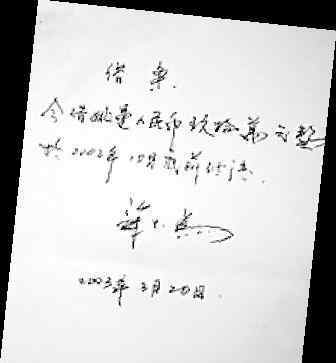 借条
今借姚是人民币玖拾万元整
于2003年10月底前归还
许
2003年3月20日